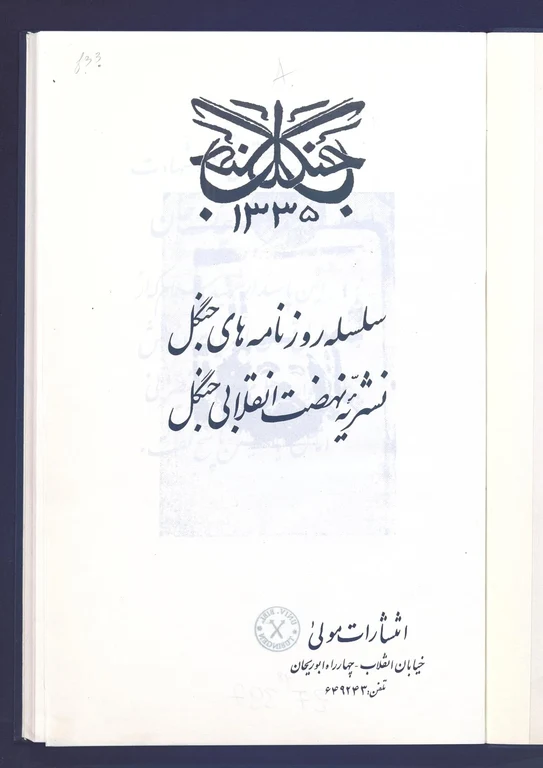 جنگل
۱۳۳۵
سلسله روزنامه های جنگل
نشریّهٔ نهضت انقلابی جنگل
انتشارات مولیٰ
خیابان انقلاب - چهارراه ابوریحان
تلفن: ۶۴۹۲۴۳